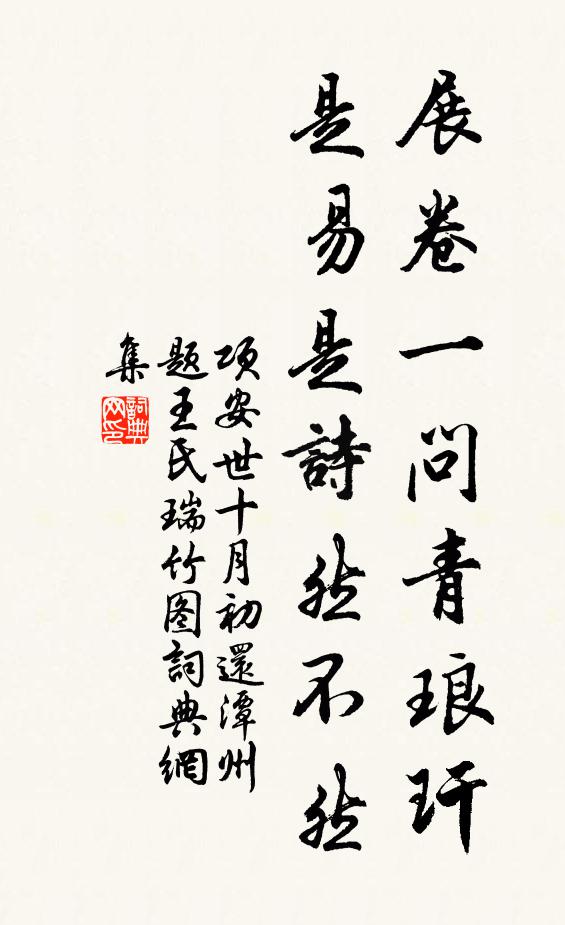 展卷一問青琅玕
是易是詩然不然
項安世十月初還潭州
題王氏瑞竹图詞典網
集
詞典網印